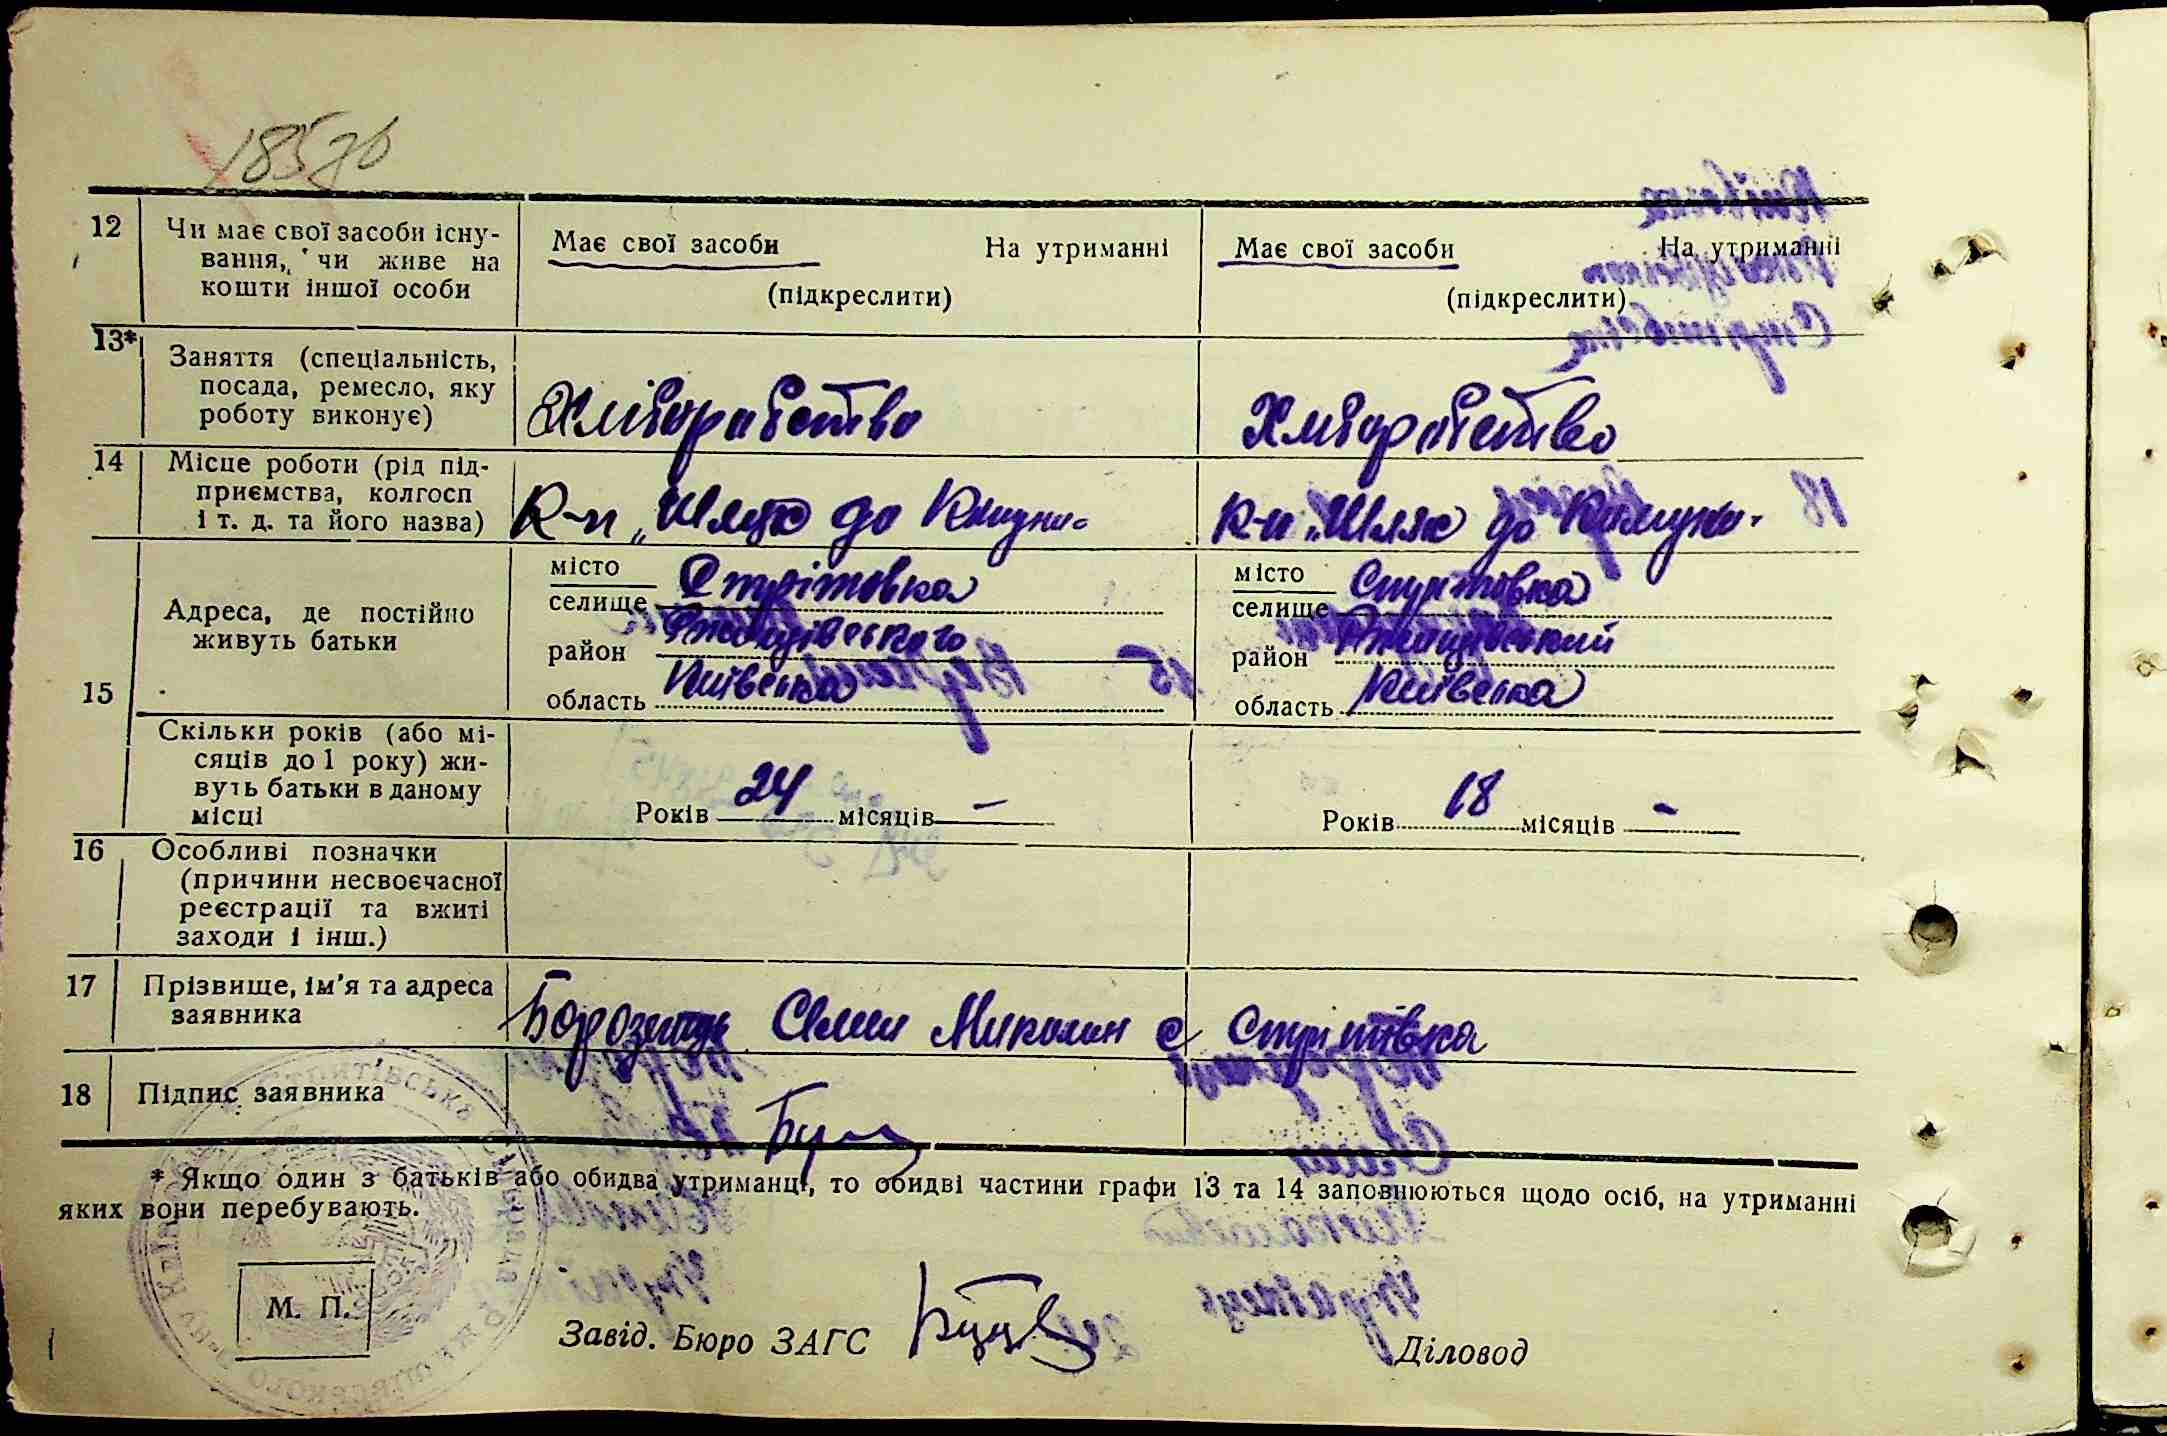 12 Чи має свої засоби існу-
вання, чи живе на
кошти іншої особи
Має свої засоби На утриманні
(підкреслити)
Має свої засоби На утриманні
(підкреслити)
13* Заняття (спеціальність,
посада, ремесло, яку
роботу виконує)
Хліборобство
Хліборобство
14 Місце роботи (рід під-
приємства, колгосп
і т. д. та його назва)
К-п „Шлях до Комуни"
К-п „Шлях до Комуни"
15 Адреса, де постійно
живуть батьки
місто
селище Стрітовка
район Ржищівського
область Київська
місто
селище Стрітовка
район Ржищівський
область Київська
Скільки років (або мі-
сяців до 1 року) жи-
вуть батьки в даному
місці
Років 24 місяців —
Років 18 місяців -
16 Особливі позначки
(причини несвоєчасної
реєстрації та вжиті
заходи і інш.)
17 Прізвище, ім'я та адреса
заявника
Семен Миколин с Стрітівка
18 Підпис заявника
* Якщо один з батьків або обидва утриманці, то обидві частини графи 13 та 14 заповнюються щодо осіб, на утриманні
яких вони перебувають.
М. П.
Завід. Бюро ЗАГС
Діловод